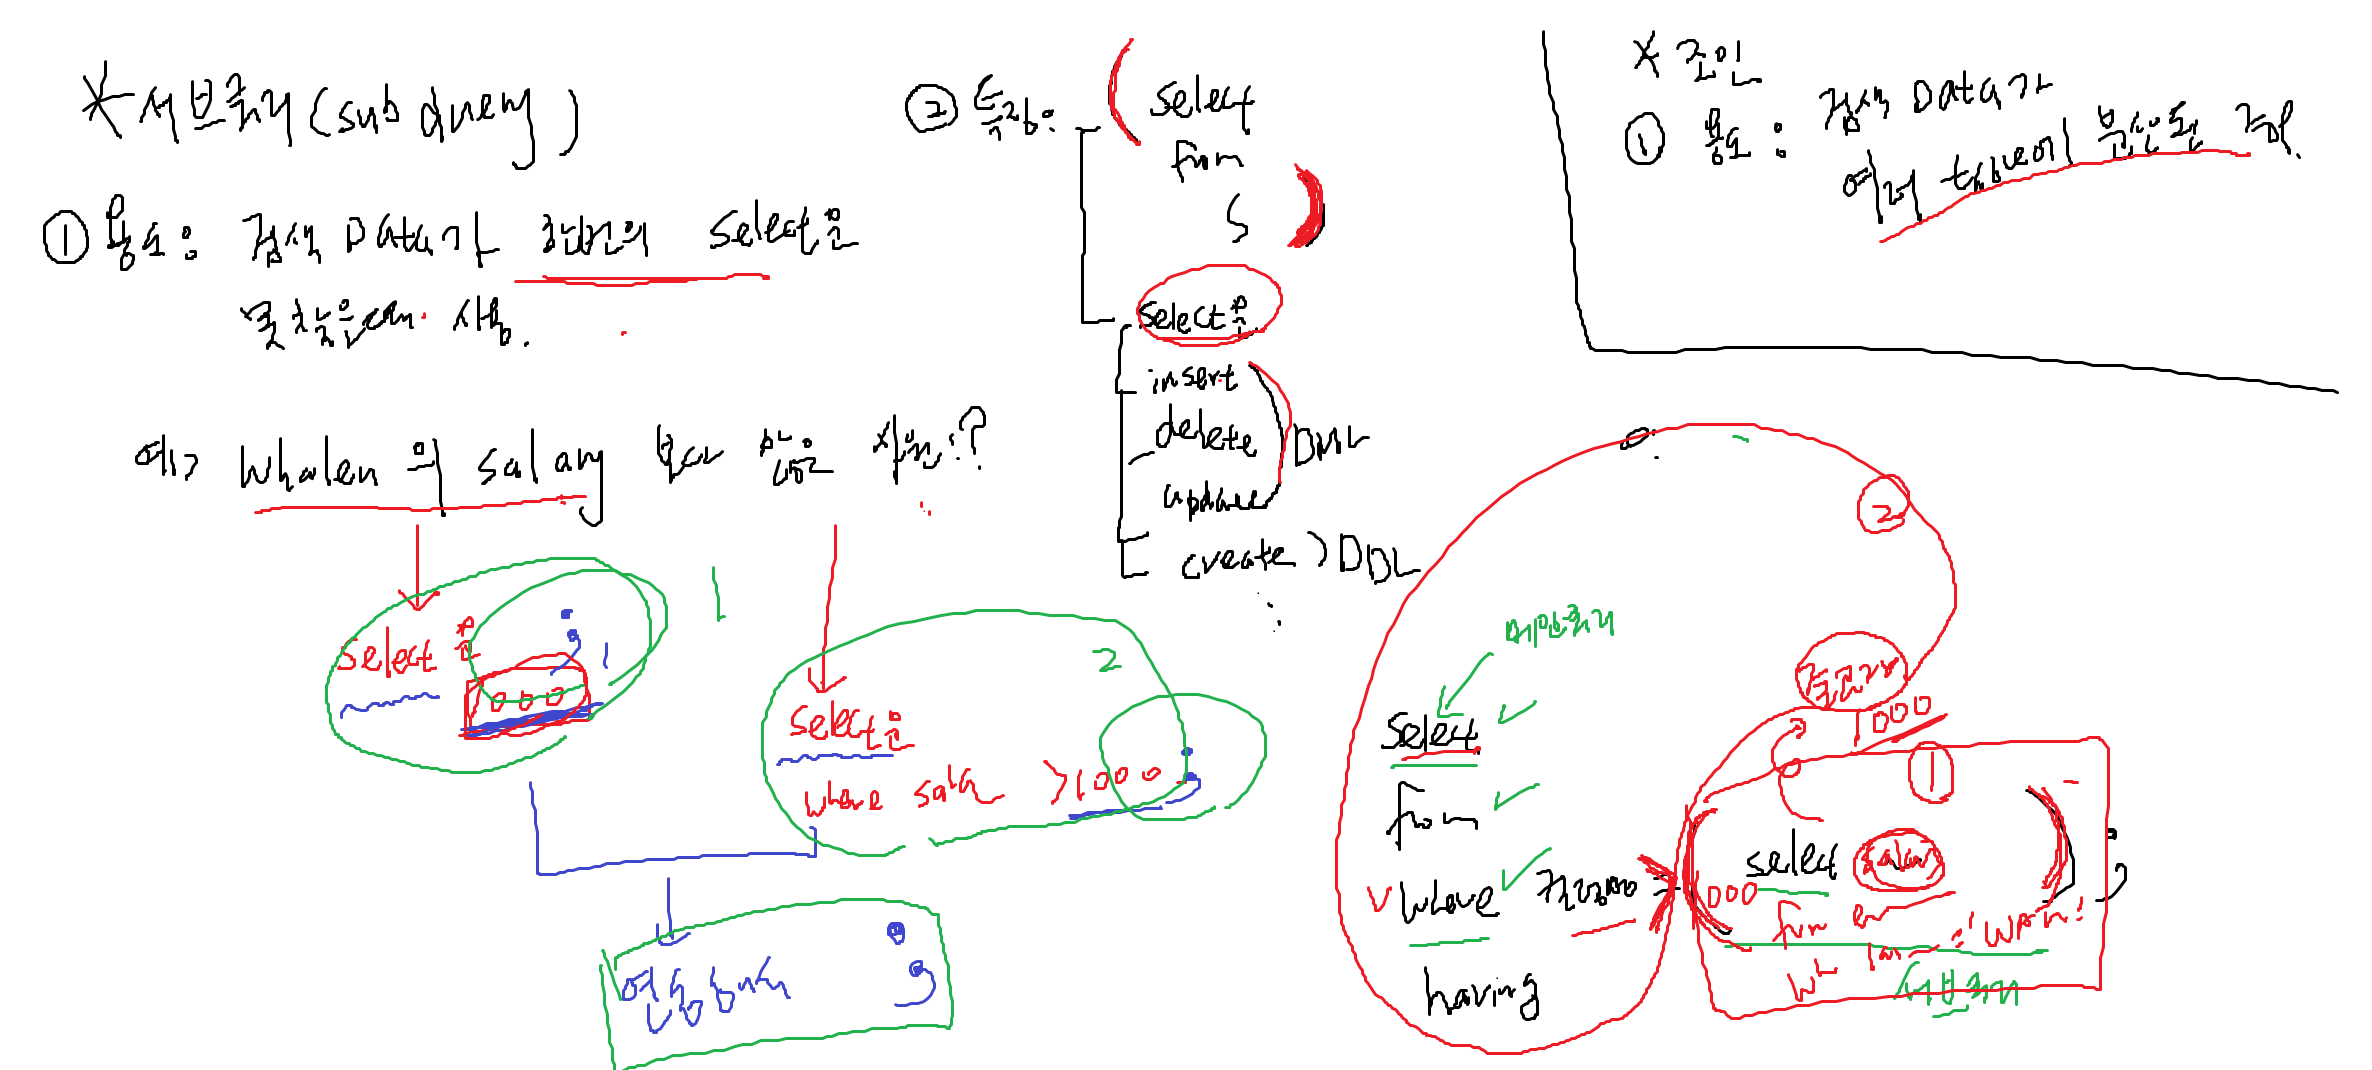 * 서브쿼리(sub query)
① 용도: 검색 Data가 한번의 select문
못찾을때 사용.
예> Whalen의 salary 보다 많은 사원:?
select문
1000
;
1
1
select문
where sala >1000
;
2
연동방식
;
② 특징:
( select
from
)
select문
insert
delete
update
DML
create > DDL
* 조인
① 용도: 검색 Data가
여러 table에 분산된 경우.
예:
②
메인쿼리
select
from
where 컬럼명 =
having
결과
1000
①
( select salary )
;
1000
from em
wh lan = 'Whalen'
서브쿼리